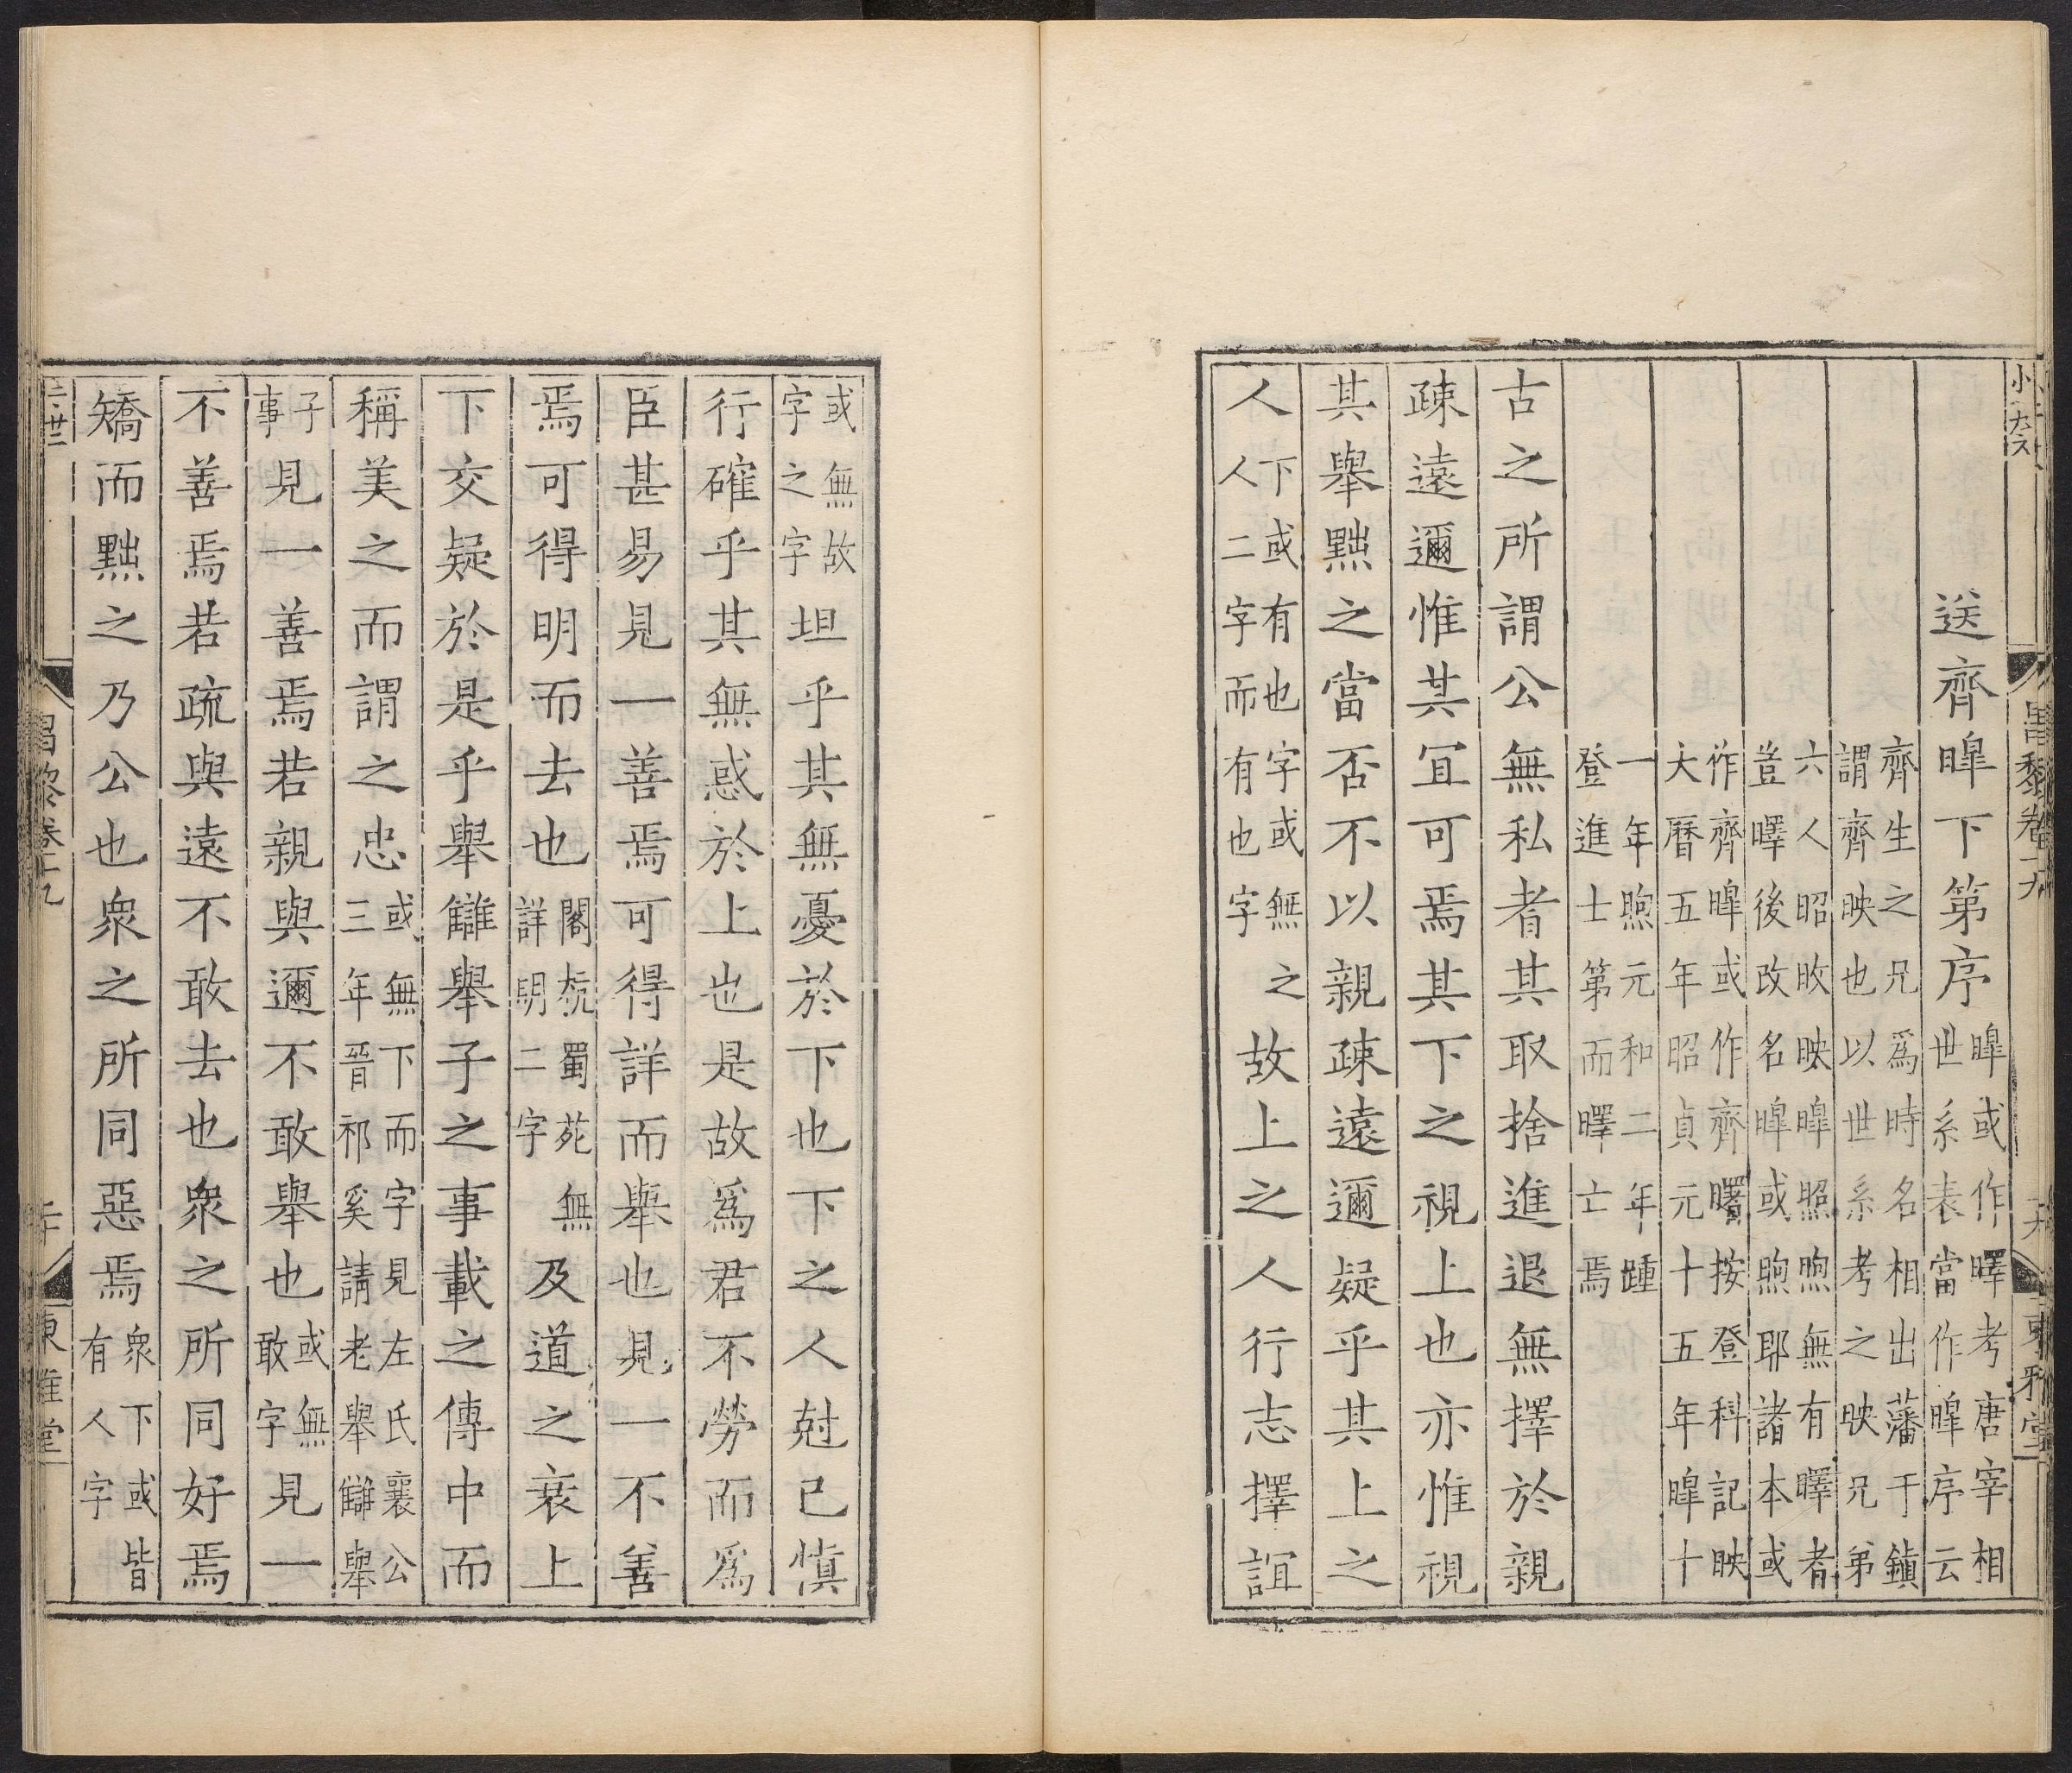 小六六
昌黎卷十九
東雅堂
送齊暭下第序暭或作曎考唐宰相世系表當作暭序云
齊生之兄爲時名相出藩于鎮謂齊映也以世系考之映兄弟
六人昭旼映暭照煦無有曎者豈曎後改名暭或煦耶諸本或
作齊暭或作齊曙按登科記映大曆五年昭貞元十五年暭十
一年煦元和二年踵登進士第而曎亡焉
古之所謂公無私者其取捨進退無擇於親
疎遠邇惟其宜可焉其下之視上也亦惟視
其舉黜之當否不以親疎遠邇疑乎其上之
人下或有也字或無之人人二字而有也字故上之人行志擇誼
或無故字之字坦乎其無憂於下也下之人尅已愼
行確乎其無惑於上也是故爲君不勞而爲
臣甚易見一善焉可得詳而舉也見一不善
焉可得明而去也閣杭蜀苑無詳明二字及道之衰上
下交疑於是乎舉讎舉子之事載之傳中而
稱美之而謂之忠或無下而字見左氏襄公三年晉祁奚請老舉讎舉
子事見一善焉若親與邇不敢舉也或無敢字見一
不善焉若疏與遠不敢去也衆之所同好焉
矯而黜之乃公也衆之所同惡焉衆下或皆有人字
昌黎卷十九
二十
東雅堂